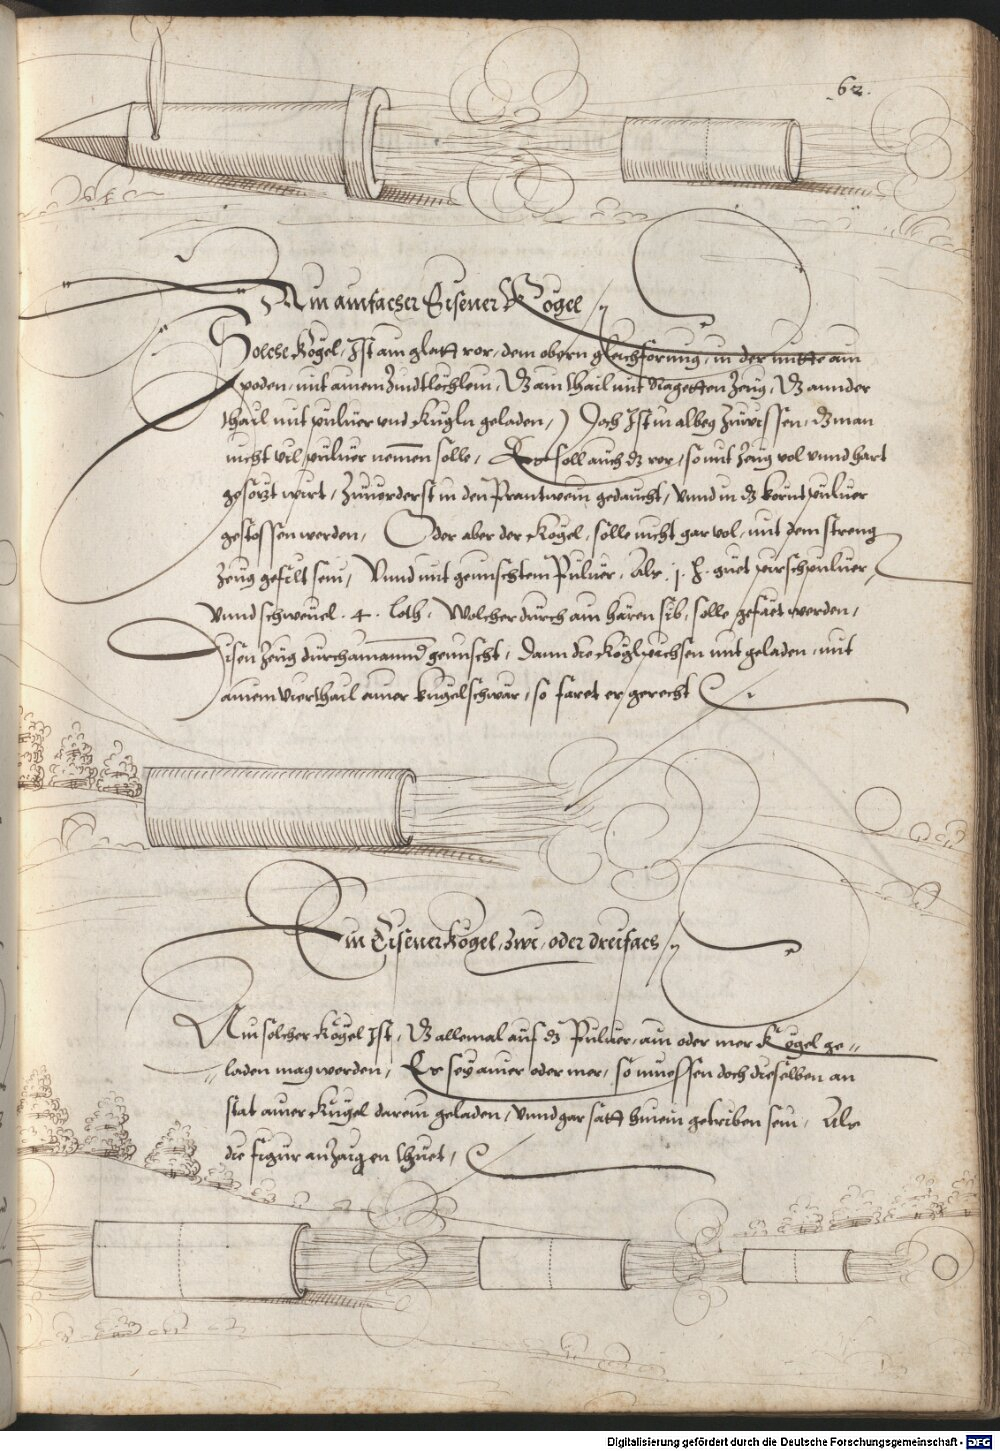 62.
Ain ainfacher Eisener Kögel
Solche Kögel, Ist ain glatt ror, dem obern gleichförmig, in der mitte ain
poden, mit ainem Zindtlöchlein, Dz ain thail mit Zeüg, Dz annder
thail mit puluer vnd Kugln geladen, Doch Ist in albeg Zuwissen, dz man
nicht vil puluer nemen solle, Er soll auch dz ror, so mit Zeug vol vnnd hart
wirt, Zuuorderst in den Prantwein gedaucht, vnnd in dz kornt puluer
gestossen werden, Oder aber der Kögel, solle nicht gar vol, mit dem streng
Zeug gefilt sein, Vnnd mit gemischtem Puluer, Als .j. guet pirschpuluer,
vnnd schweuel .4. loth, Wölcher durch ain hären sib, solle gesäet werden,
disen Zeug durchainannd gemischt, Dann die Köglpichsen mit geladen, mit
ainem vierthail ainer kugelschwär, so faret er gerecht
Ein Eisener Kögel, Zwi, oder dreifach
Ain solcher Kögel Ist, Dz allemal auf dz Puluer, ain oder mer Kögel ge=
laden mag werden, Er sey ainer oder mer, so muessen doch dieselben an
stat ainer Kugel darein geladen, vnnd gar satt hinein getriben sein, Als
die figur anZaigen thuet,
Digitalisierung gefördert durch die Deutsche Forschungsgemeinschaft - DFG